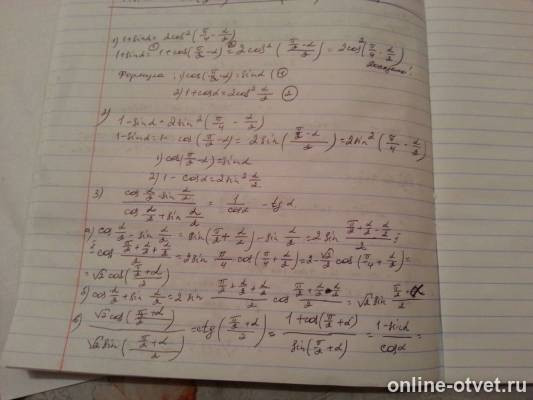 1) 1+sinα = 2cos²(π/4 - α/2)
1+sinα = 1+cos(π/2 - α) = 2cos²((π/2 - α)/2) = 2cos²(π/4 - α/2)
Формула: 1) cos(π/2 - α) = sinα ①
2) 1+cosα = 2cos² α/2 ②
2) 1-sinα = 2sin²(π/4 - α/2)
1-sinα = 1- cos(π/2 - α) = 2sin((π/2 - α)/2) = 2sin²(π/4 - α/2)
1) cos(π/2 - α) = sinα
2) 1 - cosα = 2sin² α/2
3) (cos α/2 - sin α/2)/(cos α/2 + sin α/2) = 1/cosα - tgα
а) cos α/2 - sin α/2 = sin(π/2 + α/2) - sin α/2 = 2sin (π/2 + α/2 - α/2)/2 ·
· cos (π/2 + α/2 + α/2)/2 = 2sin π/4 cos(π/4 + α/2) = 2·√2/2 cos(π/4 + α/2) =
= √2 cos((π/2 + α)/2)
б) cos α/2 + sin α/2 = 2 sin (π/2 + α/2 + α/2)/2 cos (π/2 + α/2 - α/2)/2 = √2 sin (π/2 + α)/2
в) √2 cos((π/2 + α)/2)/√2 sin((π/2 + α)/2) = ctg((π/2 + α)/2) = (1+cos(π/2 + α))/sin(π/2 + α) = (1-sinα)/cosα =
online-otvet.ru